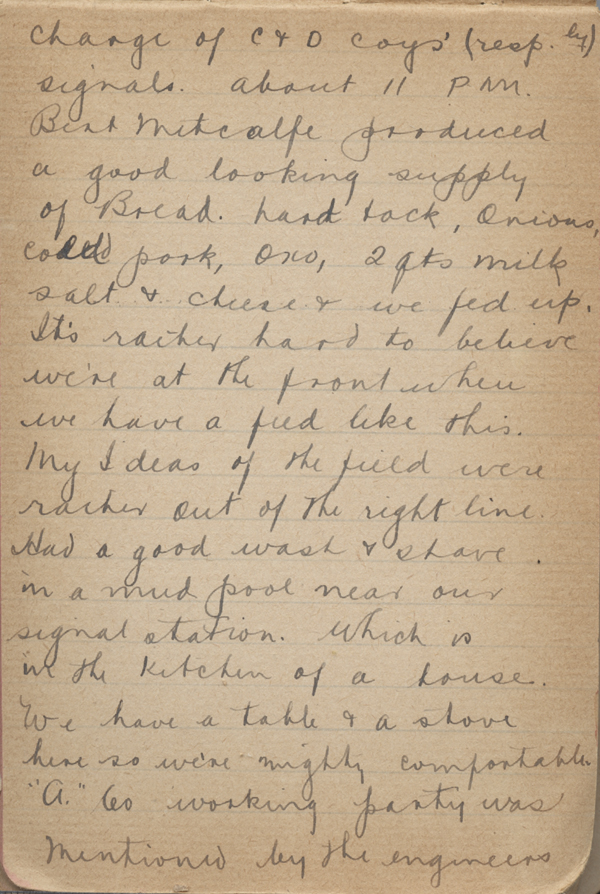 change of C & D coys' (resp. ly)
signals. about 11 P M.
Bert Metcalfe produced
a good looking supply
of Bread. hard tack, Onions,
cold pork, Oxo, 2 qts milk
salt & cheese & we fed up.
It's rather hard to believe
we're at the front when
we have a feed like this.
My Ideas of the field were
rather out of the right line.
Had a good wash & shave.
in a mud pool near our
signal station. Which is
in the kitchen of a house.
We have a table & a stove
here so we're mighty comfortable
"A." Co working party was
Mentioned by the engineers